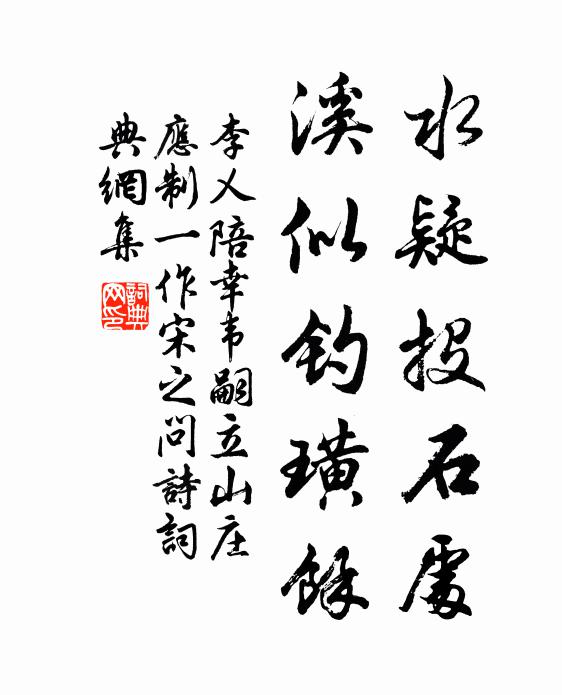 水疑投石處
溪似釣璜餘
李乂陪幸韦嗣立山庄
應制一作宋之问詩詞
典網集
詞典
网印